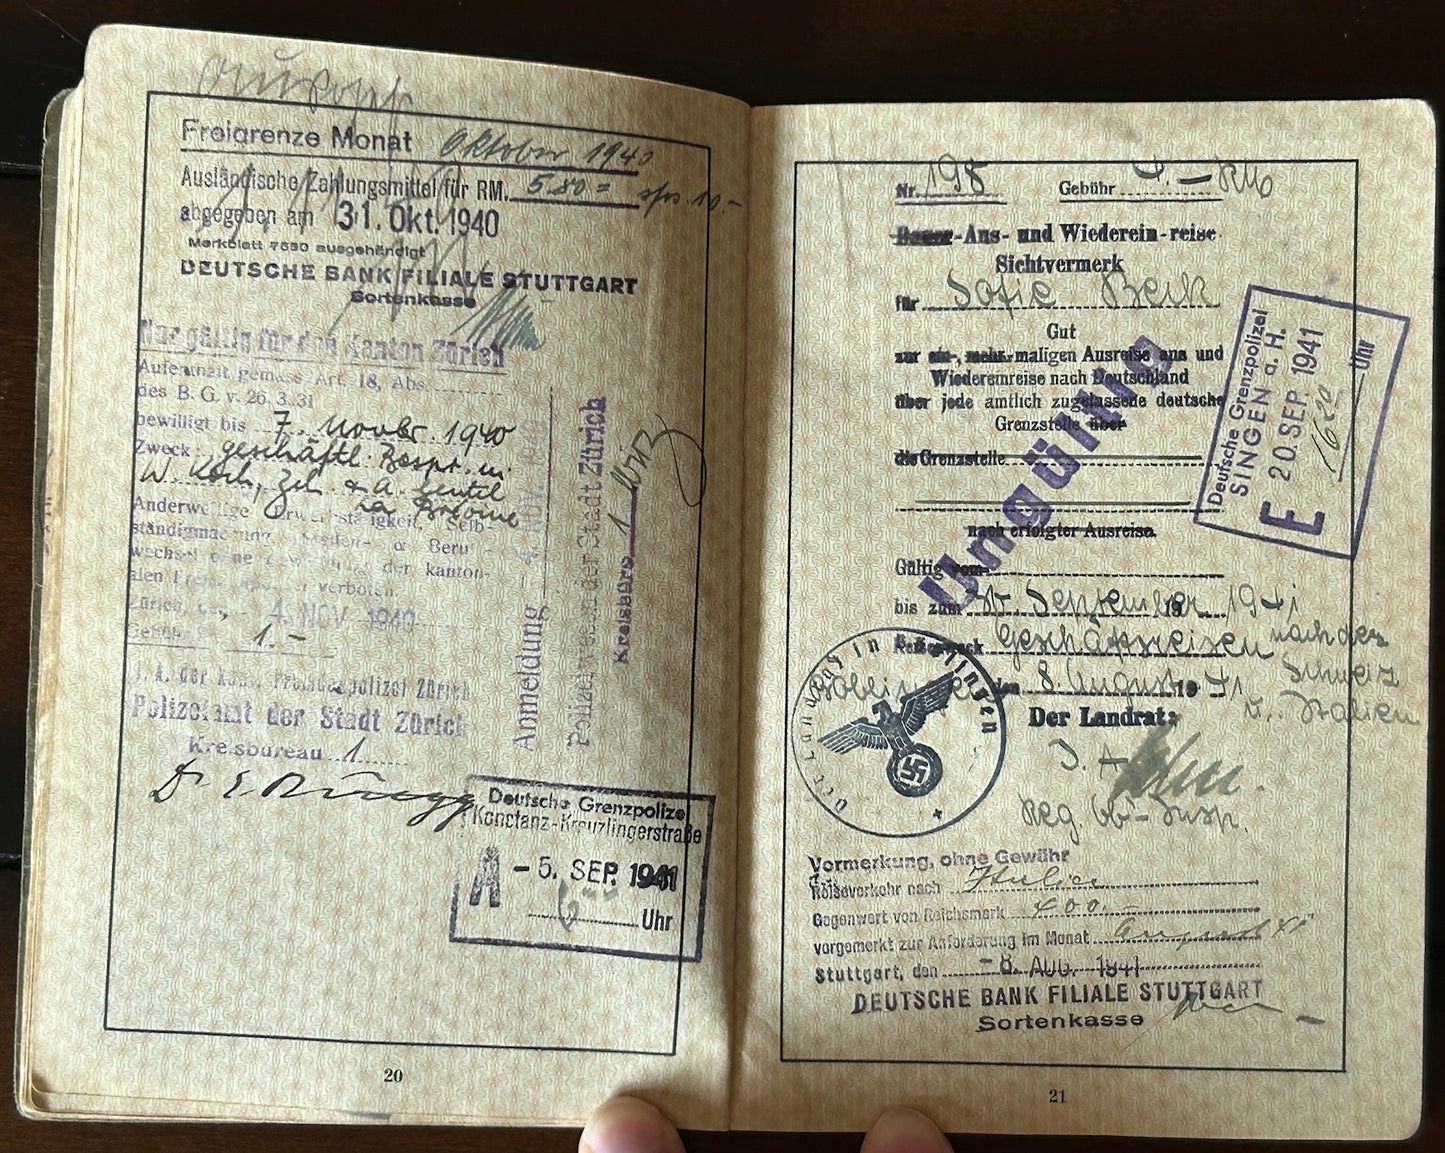 Freigrenze Monat Oktober 1940
Ausländische Zahlungsmittel für RM. 5.80 = sfrs. 10.-
abgegeben am 31. Okt. 1940
Merkblatt 7580 ausgehändigt
DEUTSCHE BANK FILIALE STUTTGART
Sortenkasse
Nur gültig für den Kanton Zürich
Aufenthalt gemäss Art. 18, Abs
des B. G. v. 26. 3. 31
bewilligt bis 7. Novbr. 1940
Zweck: geschäftl. Bespr. m.
W. Koch, Zch. & A.
Anderweitige Erwerbstätigkeit, Selb-
ständigmachung, Stellen- & Beruf-
wechsel ohne der kanton-
alen verboten.
Zürich, den 4. NOV. 1940
Gebühr 1.-
I. A. der kant. Fremdenpolizei Zürich
Polizeiamt der Stadt Zürich
Kreisbureau 1
Anmeldung 4. NOV. 1940
Polizeiwesen der Stadt Zürich
Kreisbüro 1
Deutsche Grenzpolizei
Konstanz-Kreuzlingerstraße
A - 5. SEP. 1941
Uhr
20
Nr. 198 Gebühr 4.- RM
Dauer-Aus- und Wiederein-reise
Sichtvermerk
für Sofie Beck
Gut
zur ein-, mehr-maligen Ausreise aus und
Wiedereinreise nach Deutschland
über jede amtlich zugelassene deutsche
Grenzstelle über
die Grenzstelle
nach erfolgter Ausreise.
Gültig vom
bis zum September 1941
Reisezweck Geschäftsreisen nach der
Schweiz
den 8. August 1941
u. Italien
Der Landrat:
I. A.
Reg.
Ungültig
Der Landrat in Böblingen
Deutsche Grenzpolizei
SINGEN a. H.
E 20. SEP. 1941
16 20 Uhr
Vormerkung, ohne Gewähr
Reiseverkehr nach Italien
Gegenwert von Reichsmark 400.-
vorgemerkt zur Anforderung im Monat August 41
Stuttgart, den - 8. AUG. 1941
DEUTSCHE BANK FILIALE STUTTGART
Sortenkasse
21